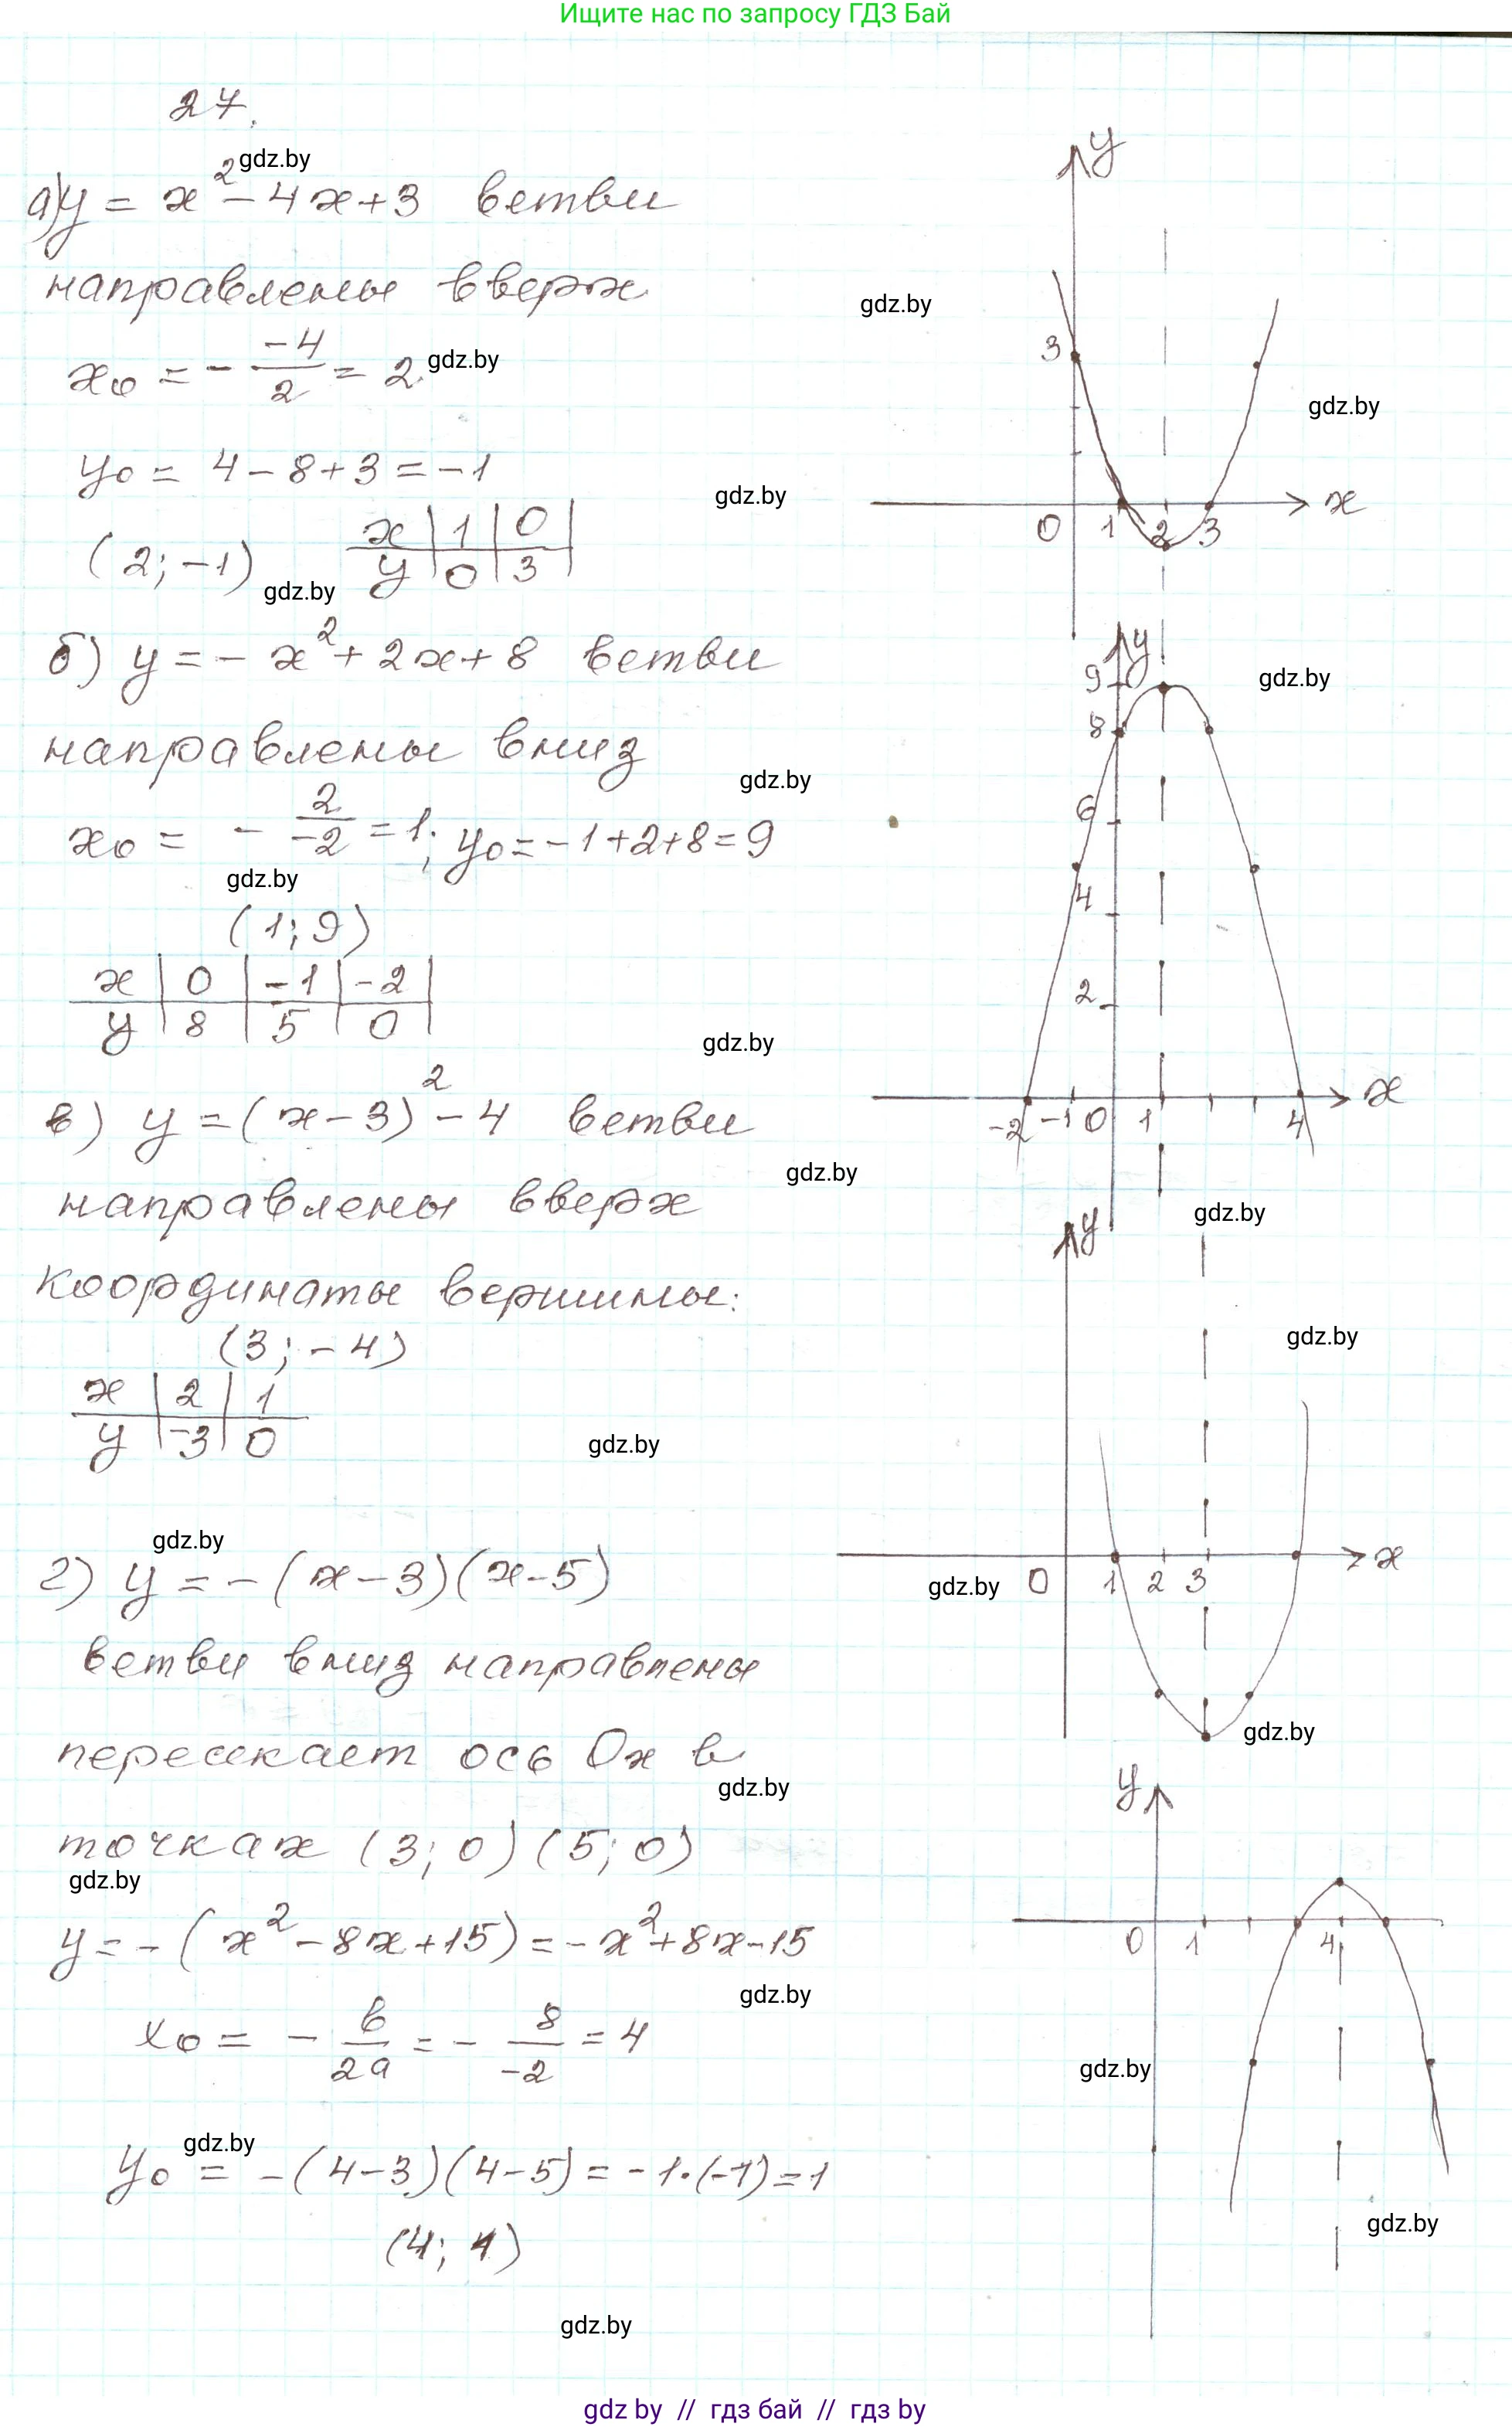 Ищите нас по запросу ГДЗ Бай
27.
gdz.by
а) y = x² - 4x + 3 ветви
направлены вверх
gdz.by
x₀ = - -4/2 = 2.
gdz.by
gdz.by
y₀ = 4 - 8 + 3 = -1
gdz.by
(2; -1)
x | 1 | 0 |
y | 0 | 3 |
gdz.by
y
3
0 1 2 3 x
б) y = - x² + 2x + 8 ветви
gdz.by
направлены вниз
gdz.by
x₀ = - 2/-2 = 1; y₀ = -1 + 2 + 8 = 9
gdz.by
(1; 9)
x | 0 | -1 | -2 |
y | 8 | 5 | 0 |
gdz.by
y
9
8
6
4
2
-2 -1 0 1 4 x
в) y = (x - 3)² - 4 ветви
gdz.by
направлены вверх
gdz.by
координаты вершины:
gdz.by
(3; -4)
x | 2 | 1
y | -3 | 0
gdz.by
y
0 1 2 3 x
gdz.by
gdz.by
г) y = - (x - 3)(x - 5)
ветви вниз направлены
gdz.by
пересекает ось Ox в
gdz.by
точках (3; 0) (5; 0)
gdz.by
y = - (x² - 8x + 15) = - x² + 8x - 15
gdz.by
x₀ = - b/2a = - 8/-2 = 4
gdz.by
y
0 1 4
gdz.by
y₀ = - (4 - 3)(4 - 5) = - 1 · (-1) = 1
gdz.by
(4; 1)
gdz.by
gdz by // гдз бай // gdz by